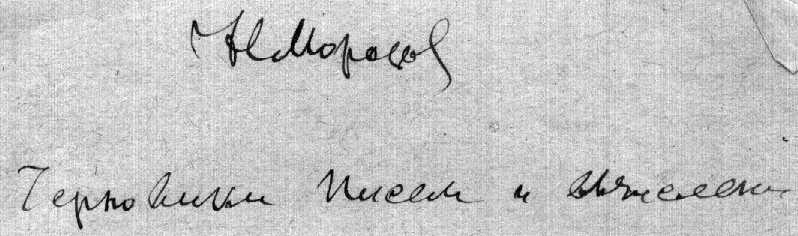 Н Морозов
Черновики писем и вычислен